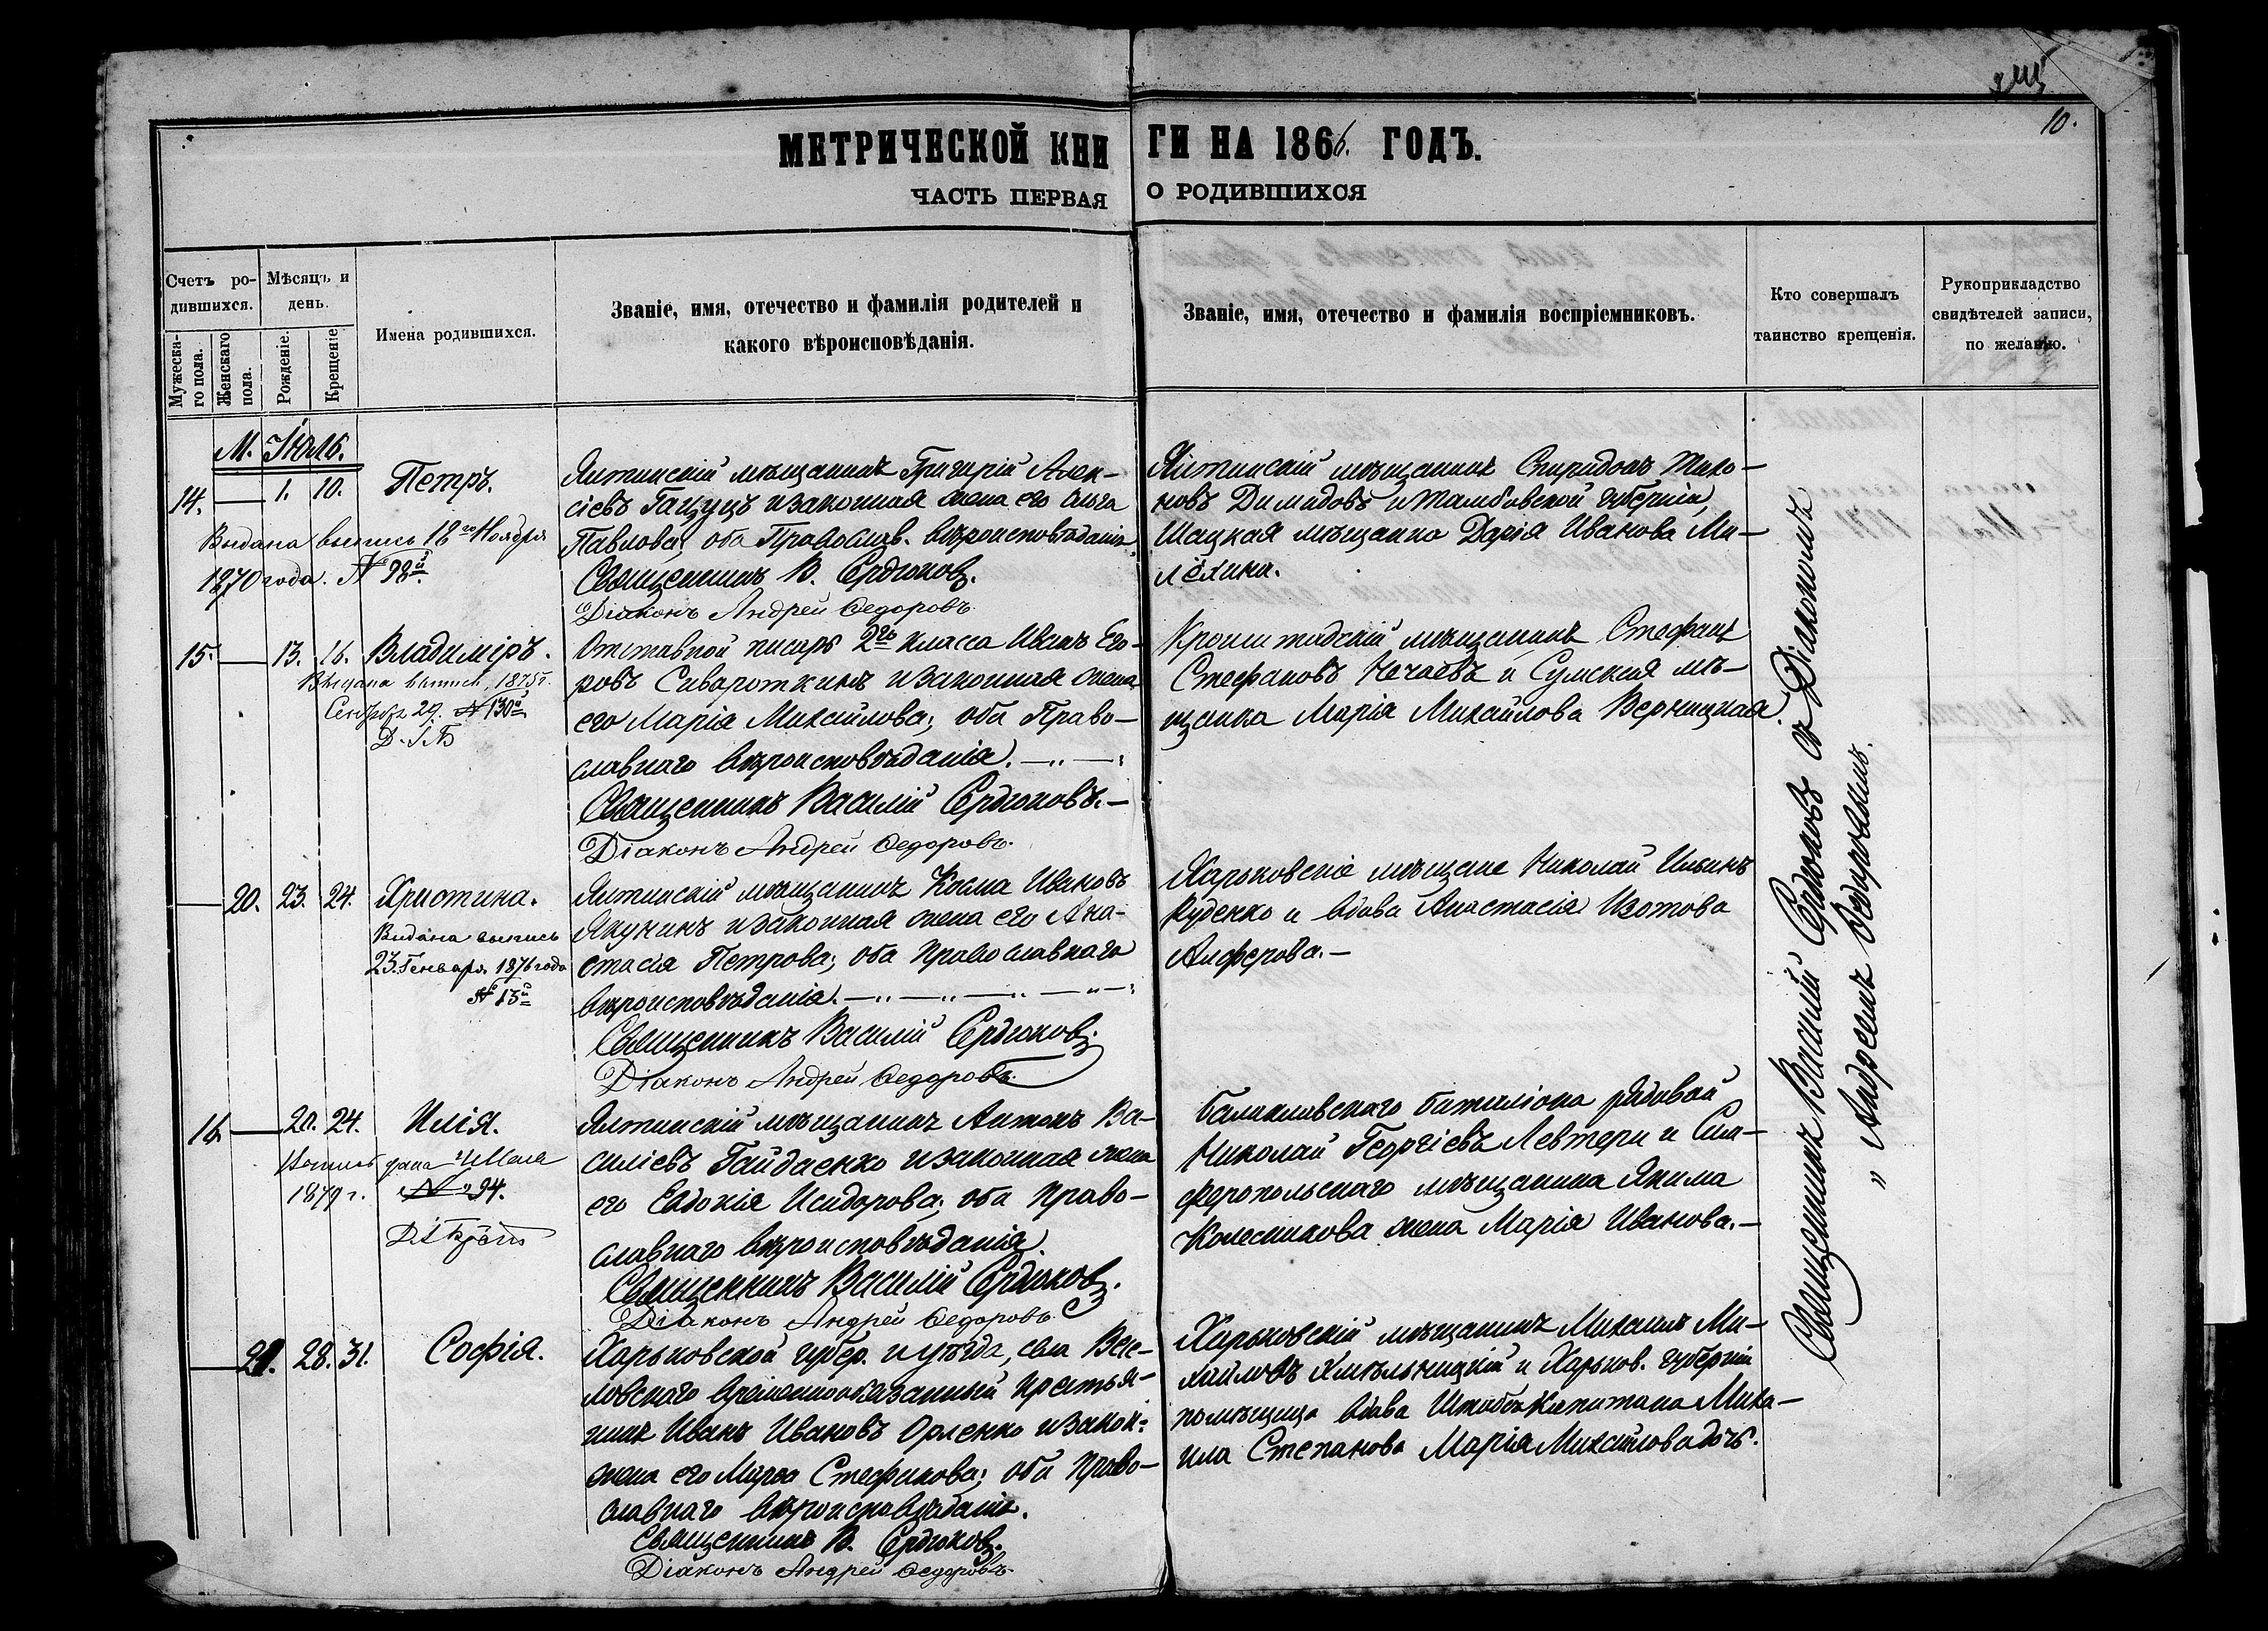 10.
МЕТРИЧЕСКОЙ КНИГИ НА 1866. ГОДЪ.
ЧАСТЬ ПЕРВАЯ О РОДИВШИХСЯ
Счетъ ро-
дившихся.
Мужеска-
го пола.
Женскаго
пола.
Мѣсяцъ и
день.
Рожденіе.
Крещеніе
Имена родившихся.
Званіе, имя, отечество и фамилія родителей и
какого вѣроисповѣданія.
Званіе, имя, отечество и фамилія воспріемниковъ.
Кто совершалъ
таинство крещенія.
Рукоприкладство
свидѣтелей записи,
по желанію.
М. Іюль.
14. — 1. 10. Петръ.
Выдана выпись 18го Ноября
1870 года. № 98й
Ялтинскій мѣщанинъ Григорій Алек-
сіевъ Гацуцъ и законная жена его Ольга
Павлова; оба Правослов. вѣроисповѣданія.
Священникъ В. Сердюковъ.
Діаконъ Андрей Ѳедоровъ.
Ялтинскій мѣщанинъ Спиридонъ Тихо-
новъ Димидовъ и Тамбовской губерніи,
Шацкая мѣщанка Дарія Иванова Ми-
лёхина.
15. — 13. 16. Владиміръ.
Выдана выпись, 1875 г.
Сентября 29. № 130й
Отставной писарь 2го класса Иванъ Его-
ровъ Сивароткинъ и законная жена
его Марія Михайлова; оба Право-
славнаго вѣроисповѣданія.
Священникъ Василій Сердюковъ.
Діаконъ Андрей Ѳедоровъ.
Кронштадскій мѣщанинъ Стефанъ
Стефановъ Нечаевъ и Сумская мѣ-
щанка Марія Михайлова Верницкая.
— 20. 23. 24. Христина.
Видана выпись
23. Генваря 1876 года
№ 13й
Ялтинскій мѣщанинъ Косма Ивановъ
Якунинъ и законная жена его Ана-
стасія Петрова; оба Православнаго
вѣроисповѣданія.
Священникъ Василій Сердюковъ.
Діаконъ Андрей Ѳедоровъ.
Харьковскіе мѣщане Николай Ильинъ
Руденко и вдова Анастасія Изотова
Алферова.
16. — 20. 24. Илія.
Выпись дана Мая
1879 г. № 94.
Ялтинскій мѣщанинъ Антонъ Ва-
силіевъ Гайдаенко и законная жена
его Евдокія Исидорова; оба Право-
славнаго вѣроисповѣданія.
Священникъ Василій Сердюковъ.
Діаконъ Андрей Ѳедоровъ
Балаклавскаго баталіона рядовой
Николай Георгіевъ Левтери и Сим-
феропольскаго мѣщанина Якима
Колесникова жена Марія Иванова.
— 21. 28. 31. Софія.
Харьковской губер. и уѣзда, села Весе-
ловскаго временнообязанный крестья-
нинъ Иванъ Ивановъ Орленко и закон:
жена его Марѳа Стефанова; оба Право-
славнаго вѣроисповѣданія.
Священникъ В. Сердюковъ.
Діаконъ Андрей Ѳедоровъ.
Харьковскій мѣщанинъ Михаилъ Ми-
хайловъ Хмѣльницкій и Харьков. губерніи
помѣщица вдова Штабсъ Капитана Миха-
ила Степанова Марія Михайлова дочь.
Священникъ Василій Сердюковъ съ Діакономъ
„ Андреемъ Ѳедоровымъ.